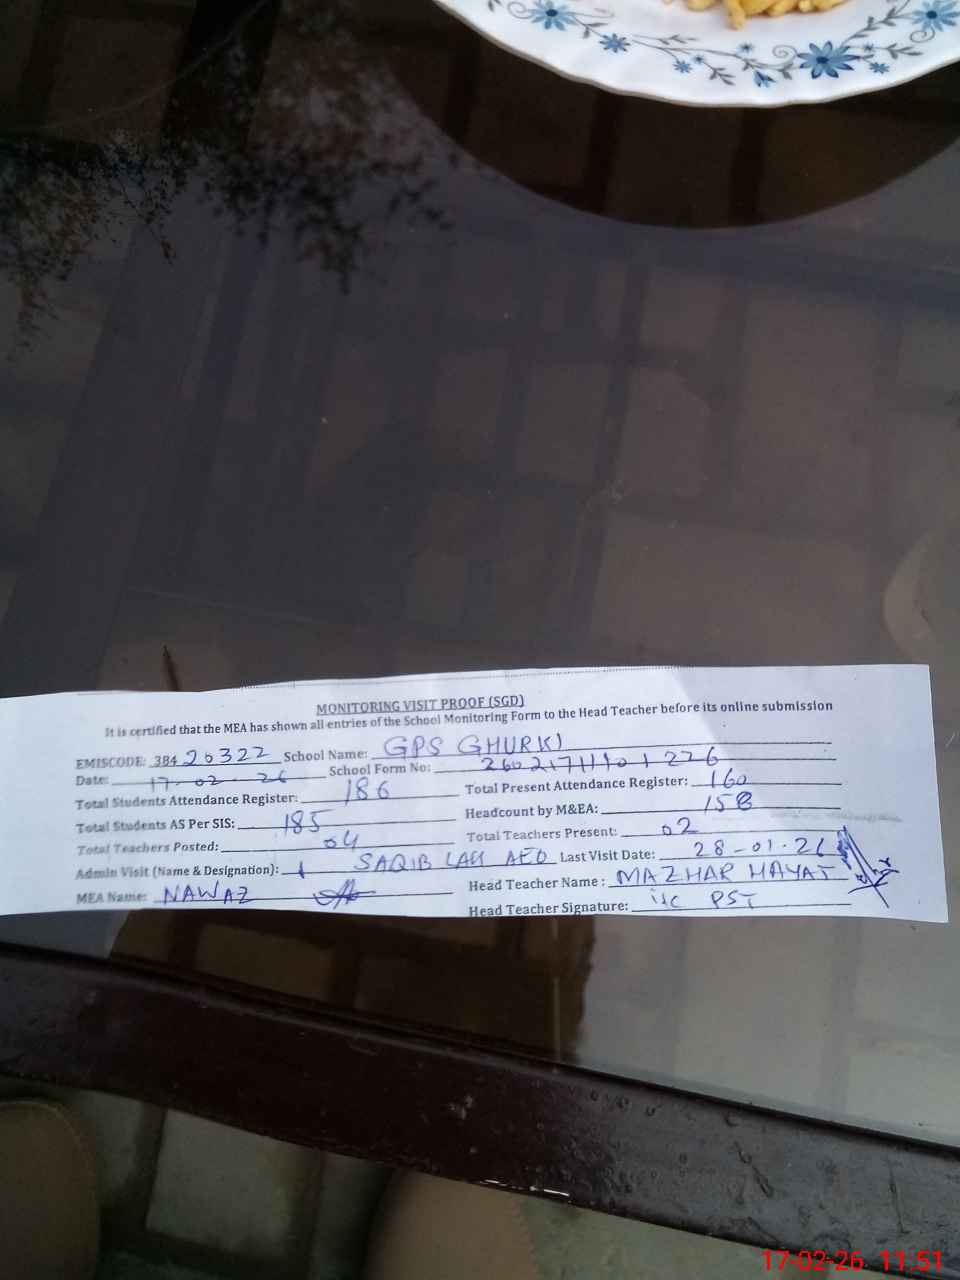 MONITORING VISIT PROOF (SGD)
It is certified that the MEA has shown all entries of the School Monitoring Form to the Head Teacher before its online submission
EMISCODE: 384 20322 School Name: GPS GHURKI
Date: 17-02-26 School Form No:
Total Students Attendance Register: 186 Total Present Attendance Register: 160
Total Students AS Per SIS: 185 Headcount by M&EA: 158
Total Teachers Posted: 04 Total Teachers Present: 02
Admin Visit (Name & Designation): 1 SAQIB LAH AEO Last Visit Date: 28-01-26
MEA Name: NAWAZ Head Teacher Name: MAZHAR HAYAT
Head Teacher Signature: i/c PST
17-02-26 11:51